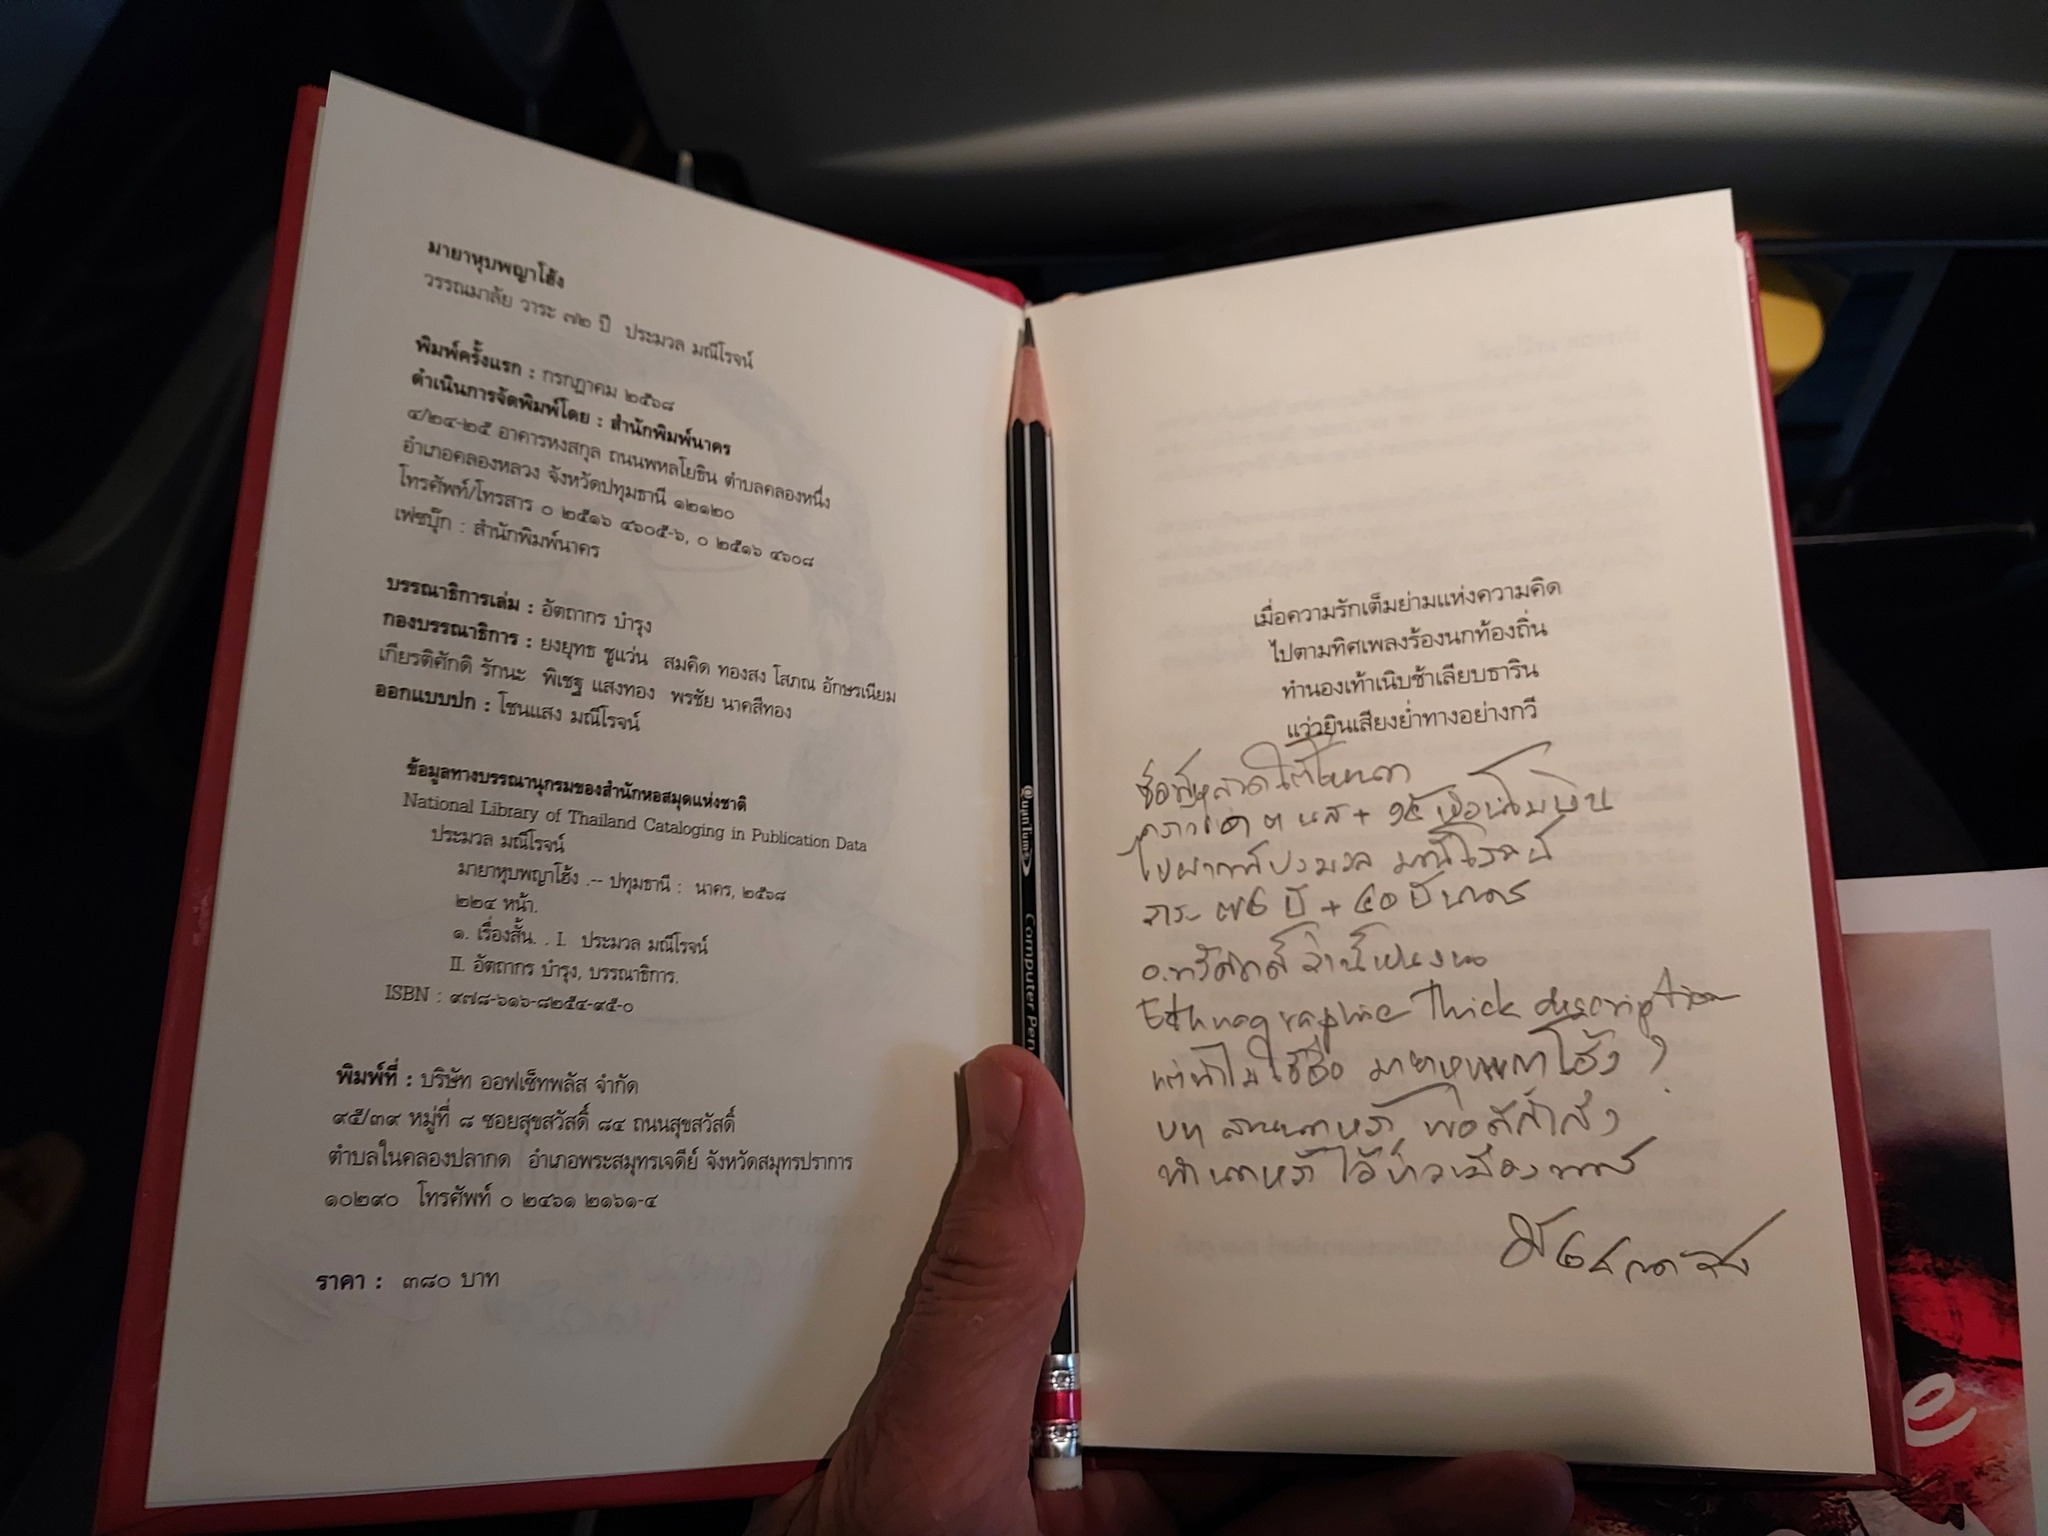 มายาหุบพญาโฮ้ง
วรรณมาลัย วาระ ๗๒ ปี ประมวล มณีโรจน์
พิมพ์ครั้งแรก : กรกฎาคม ๒๕๖๘
ดำเนินการจัดพิมพ์โดย : สำนักพิมพ์นาคร
๔/๒๔-๒๕ อาคารหงสกุล ถนนพหลโยธิน ตำบลคลองหนึ่ง
อำเภอคลองหลวง จังหวัดปทุมธานี ๑๒๑๒๐
โทรศัพท์/โทรสาร ๐ ๒๕๑๖ ๔๖๐๕-๖, ๐ ๒๕๑๖ ๔๖๐๘
เฟซบุ๊ก : สำนักพิมพ์นาคร
บรรณาธิการเล่ม : อัตถากร บำรุง
กองบรรณาธิการ : ยงยุทธ ชูแว่น สมคิด ทองสง โสภณ อักษรเนียม
เกียรติศักดิ รักนะ พิเชฐ แสงทอง พรชัย นาคสีทอง
ออกแบบปก : โชนแสง มณีโรจน์
ข้อมูลทางบรรณานุกรมของสำนักหอสมุดแห่งชาติ
National Library of Thailand Cataloging in Publication Data
ประมวล มณีโรจน์
มายาหุบพญาโฮ้ง .-- ปทุมธานี : นาคร, ๒๕๖๘
๒๒๔ หน้า.
๑. เรื่องสั้น. . I. ประมวล มณีโรจน์
II. อัตถากร บำรุง, บรรณาธิการ.
ISBN : ๙๗๘-๖๑๖-๘๒๕๔-๙๕-๐
พิมพ์ที่ : บริษัท ออฟเซ็ทพลัส จำกัด
๙๕/๓๙ หมู่ที่ ๘ ซอยสุขสวัสดิ์ ๘๔ ถนนสุขสวัสดิ์
ตำบลในคลองปลากด อำเภอพระสมุทรเจดีย์ จังหวัดสมุทรปราการ
๑๐๒๙๐ โทรศัพท์ ๐ ๒๔๖๑ ๒๑๖๑-๔
ราคา : ๓๘๐ บาท
Quantum
Computer Pen
เมื่อความรักเต็มย่ามแห่งความคิด
ไปตามทิศเพลงร้องนกท้องถิ่น
ทำนองเท้าเนิบช้าเลียบธาริน
แว่วยินเสียงย่ำทางอย่างกวี
ประมวล มณีโรจน์
วาระ ๗๒ ปี + ๔๐ ปี นาคร
Ethnographic Thick description
ใช้ชื่อ มายาหุบพญาโฮ้ง ?
e